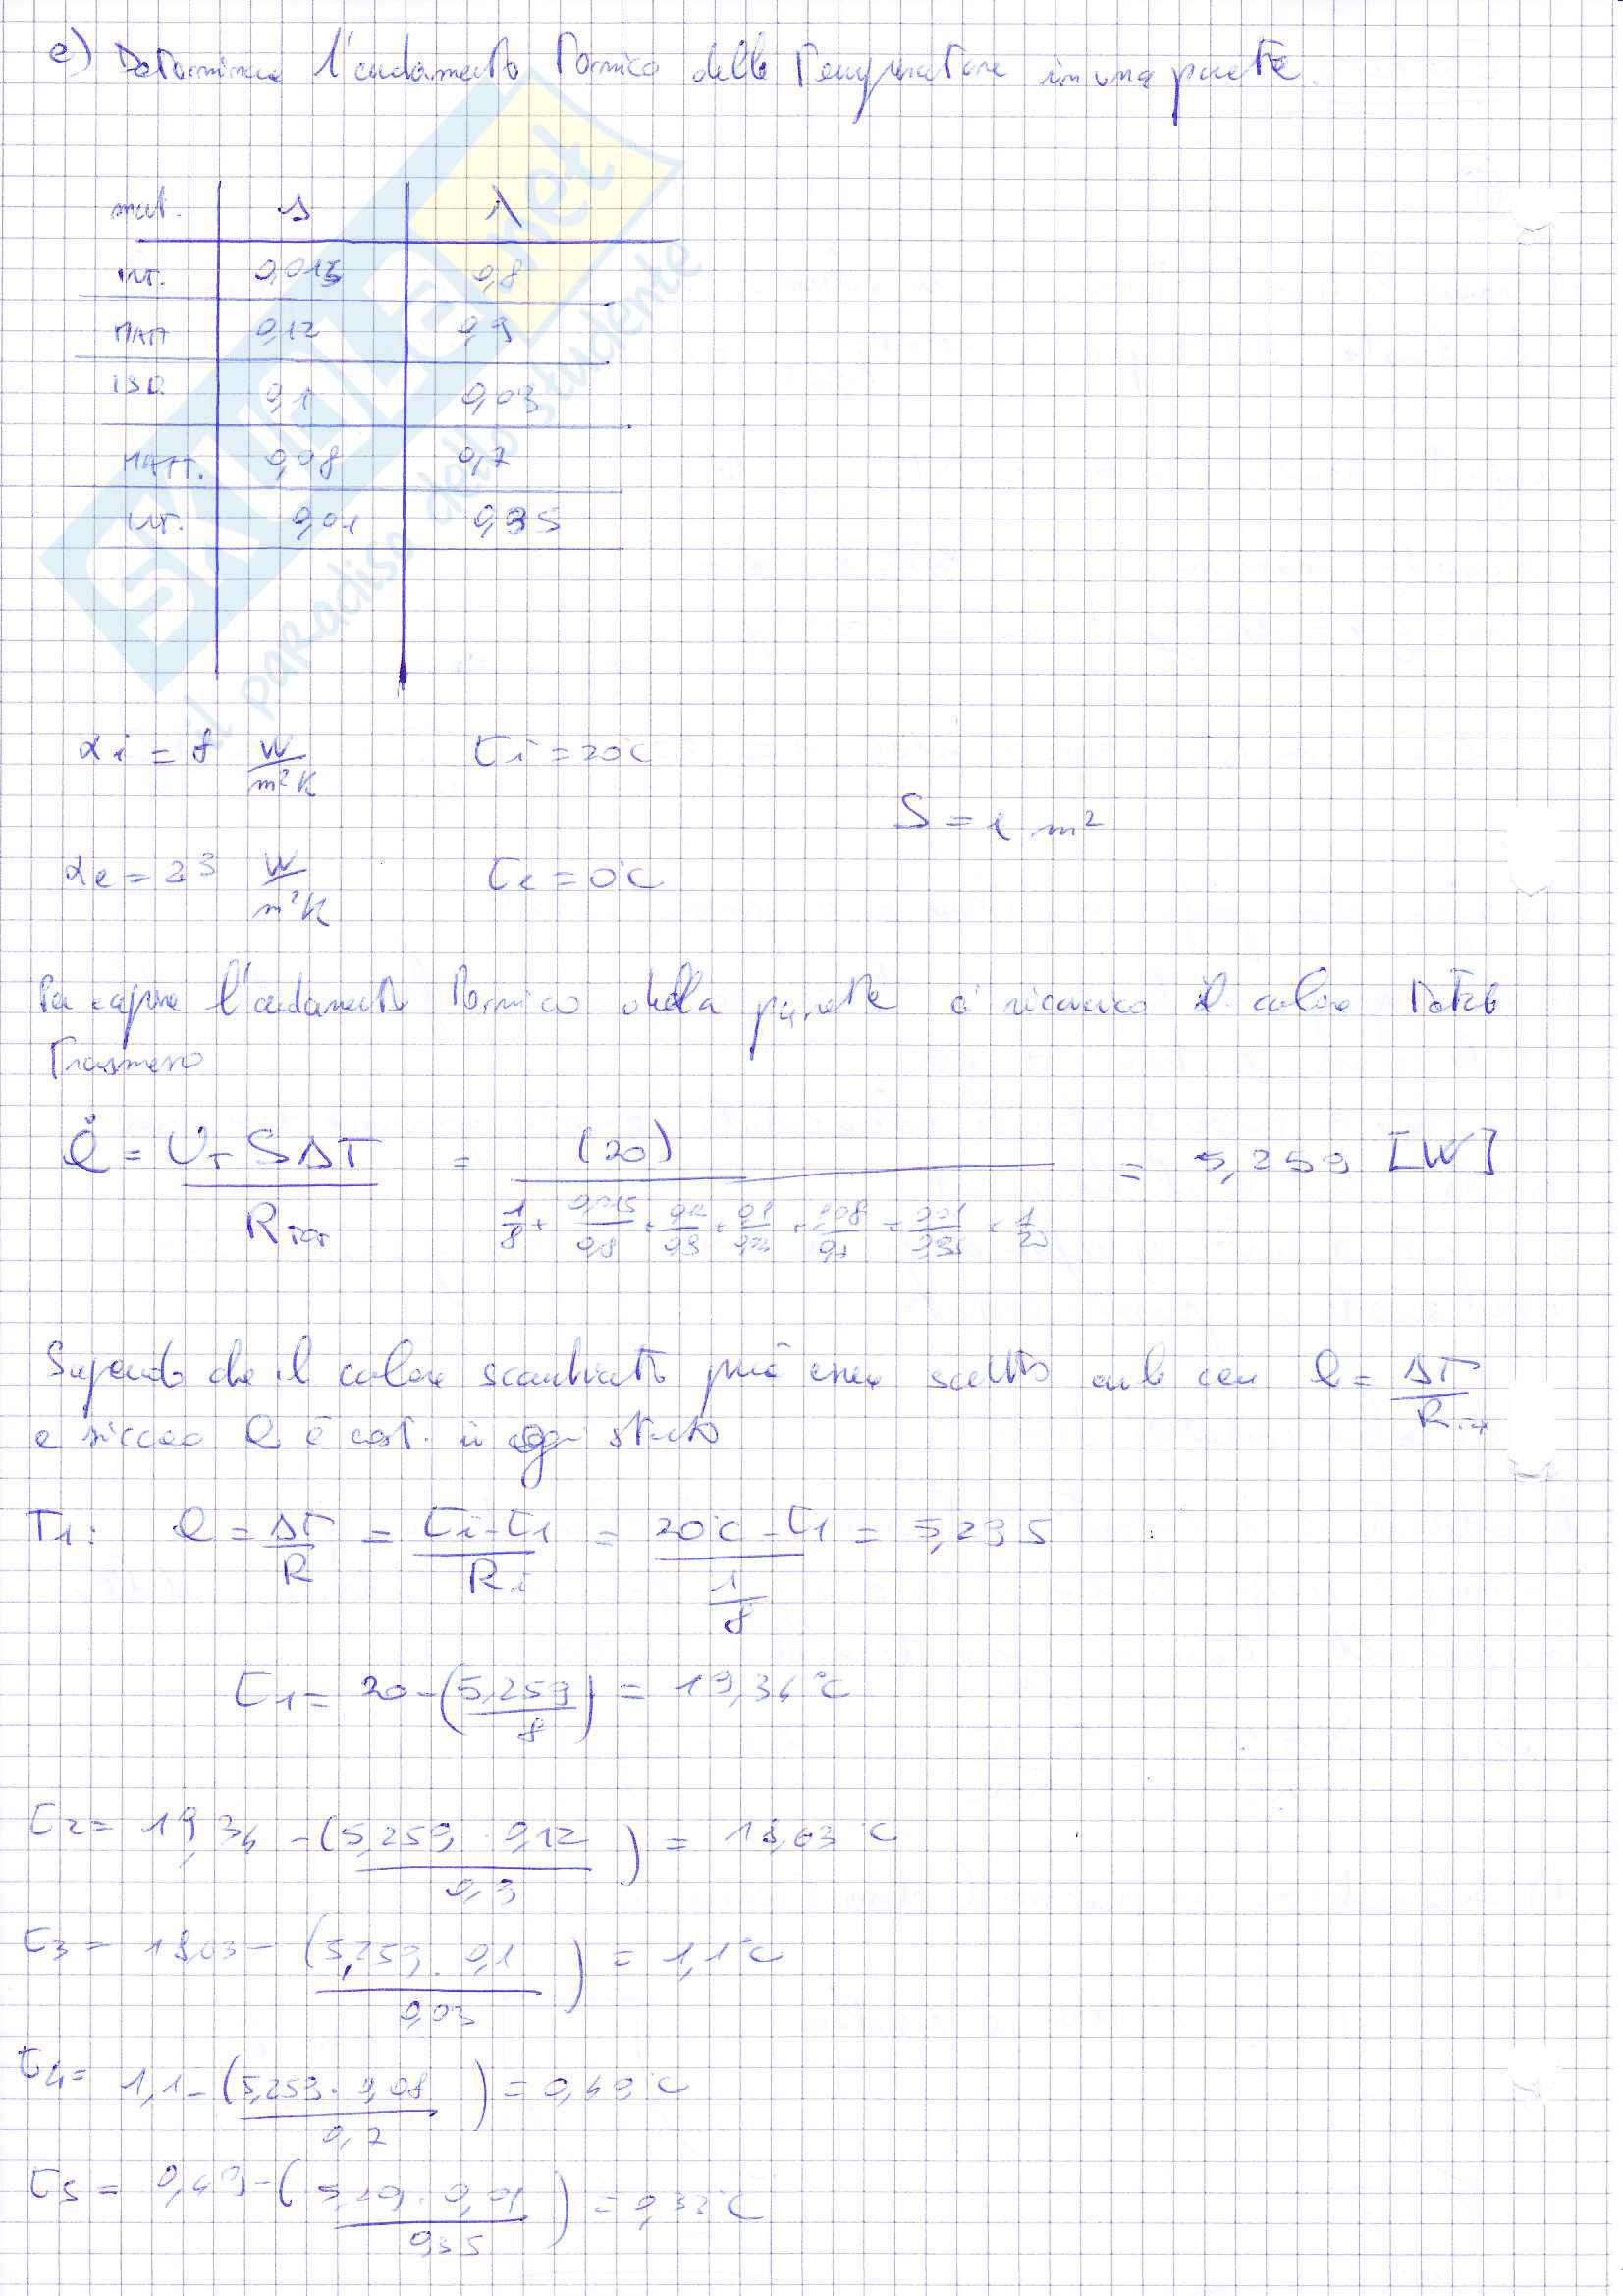 e) Determinare l'andamento termico delle temperature in una parete.
mat. s λ
INT. 0,015 0,8
MATT 0,12 0,9
ISO. 0,1 0,03
MATT. 0,08 0,7
INT. 0,01 0,35
SKUOLA.net
il paradiso dello studente
αi = 8 W/m²K ti = 20°C
S = 1 m²
αe = 23 W/m²K te = 0°C
Per capire l'andamento termico della parete ci ricaviamo il calore totale
trasmesso
Q̇ = UT SΔT / RTOT = (20) / (1/8 + 0,015/0,8 + 0,12/0,3 + 0,1/0,03 + 0,08/0,7 + 0,01/0,35 + 1/23) = 5,259 [W]
Sapendo che il calore scambiato può esser scritto anche con Q = ΔT / RTOT
e siccome Q è cost. in ogni strato
T1: Q = ΔT/R = (ti - t1)/Ri = (20°C - t1)/(1/8) = 5,295
t1 = 20 - (5,259/8) = 19,34°C
t2 = 19,34 - (5,259 · 0,12 / 0,3) = 18,63°C
t3 = 18,03 - (5,259 · 0,1 / 0,03) = 1,1°C
t4 = 1,1 - (5,259 · 0,08 / 0,7) = 0,49°C
t5 = 0,49 - (5,29 · 0,01 / 0,35) = 0,33°C